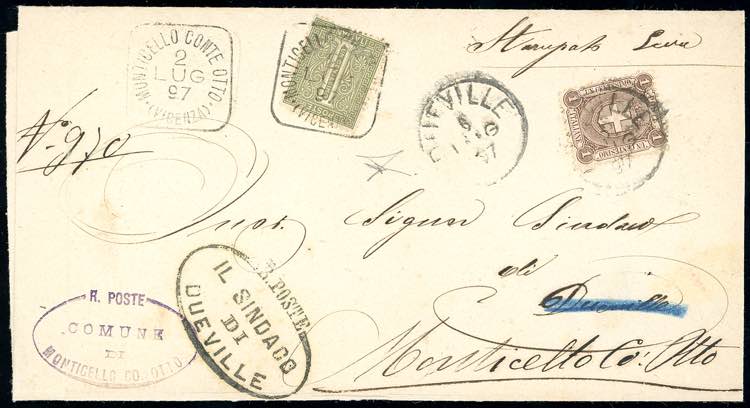 MONTICELLO CONTE OTTO
2
LUG
97
(VICENZA)
MONTICELLO
97
(VICEN
Stampati
DUEVILLE
97
1 UN CENTESIMO 1
UN CENTESIMO
N° 970
Signor Sindaco
di
Dueville
Monticello Co: Otto
R. POSTE
COMUNE
DI
MONTICELLO CO. OTTO
R. POSTE
IL SINDACO
DI
DUEVILLE